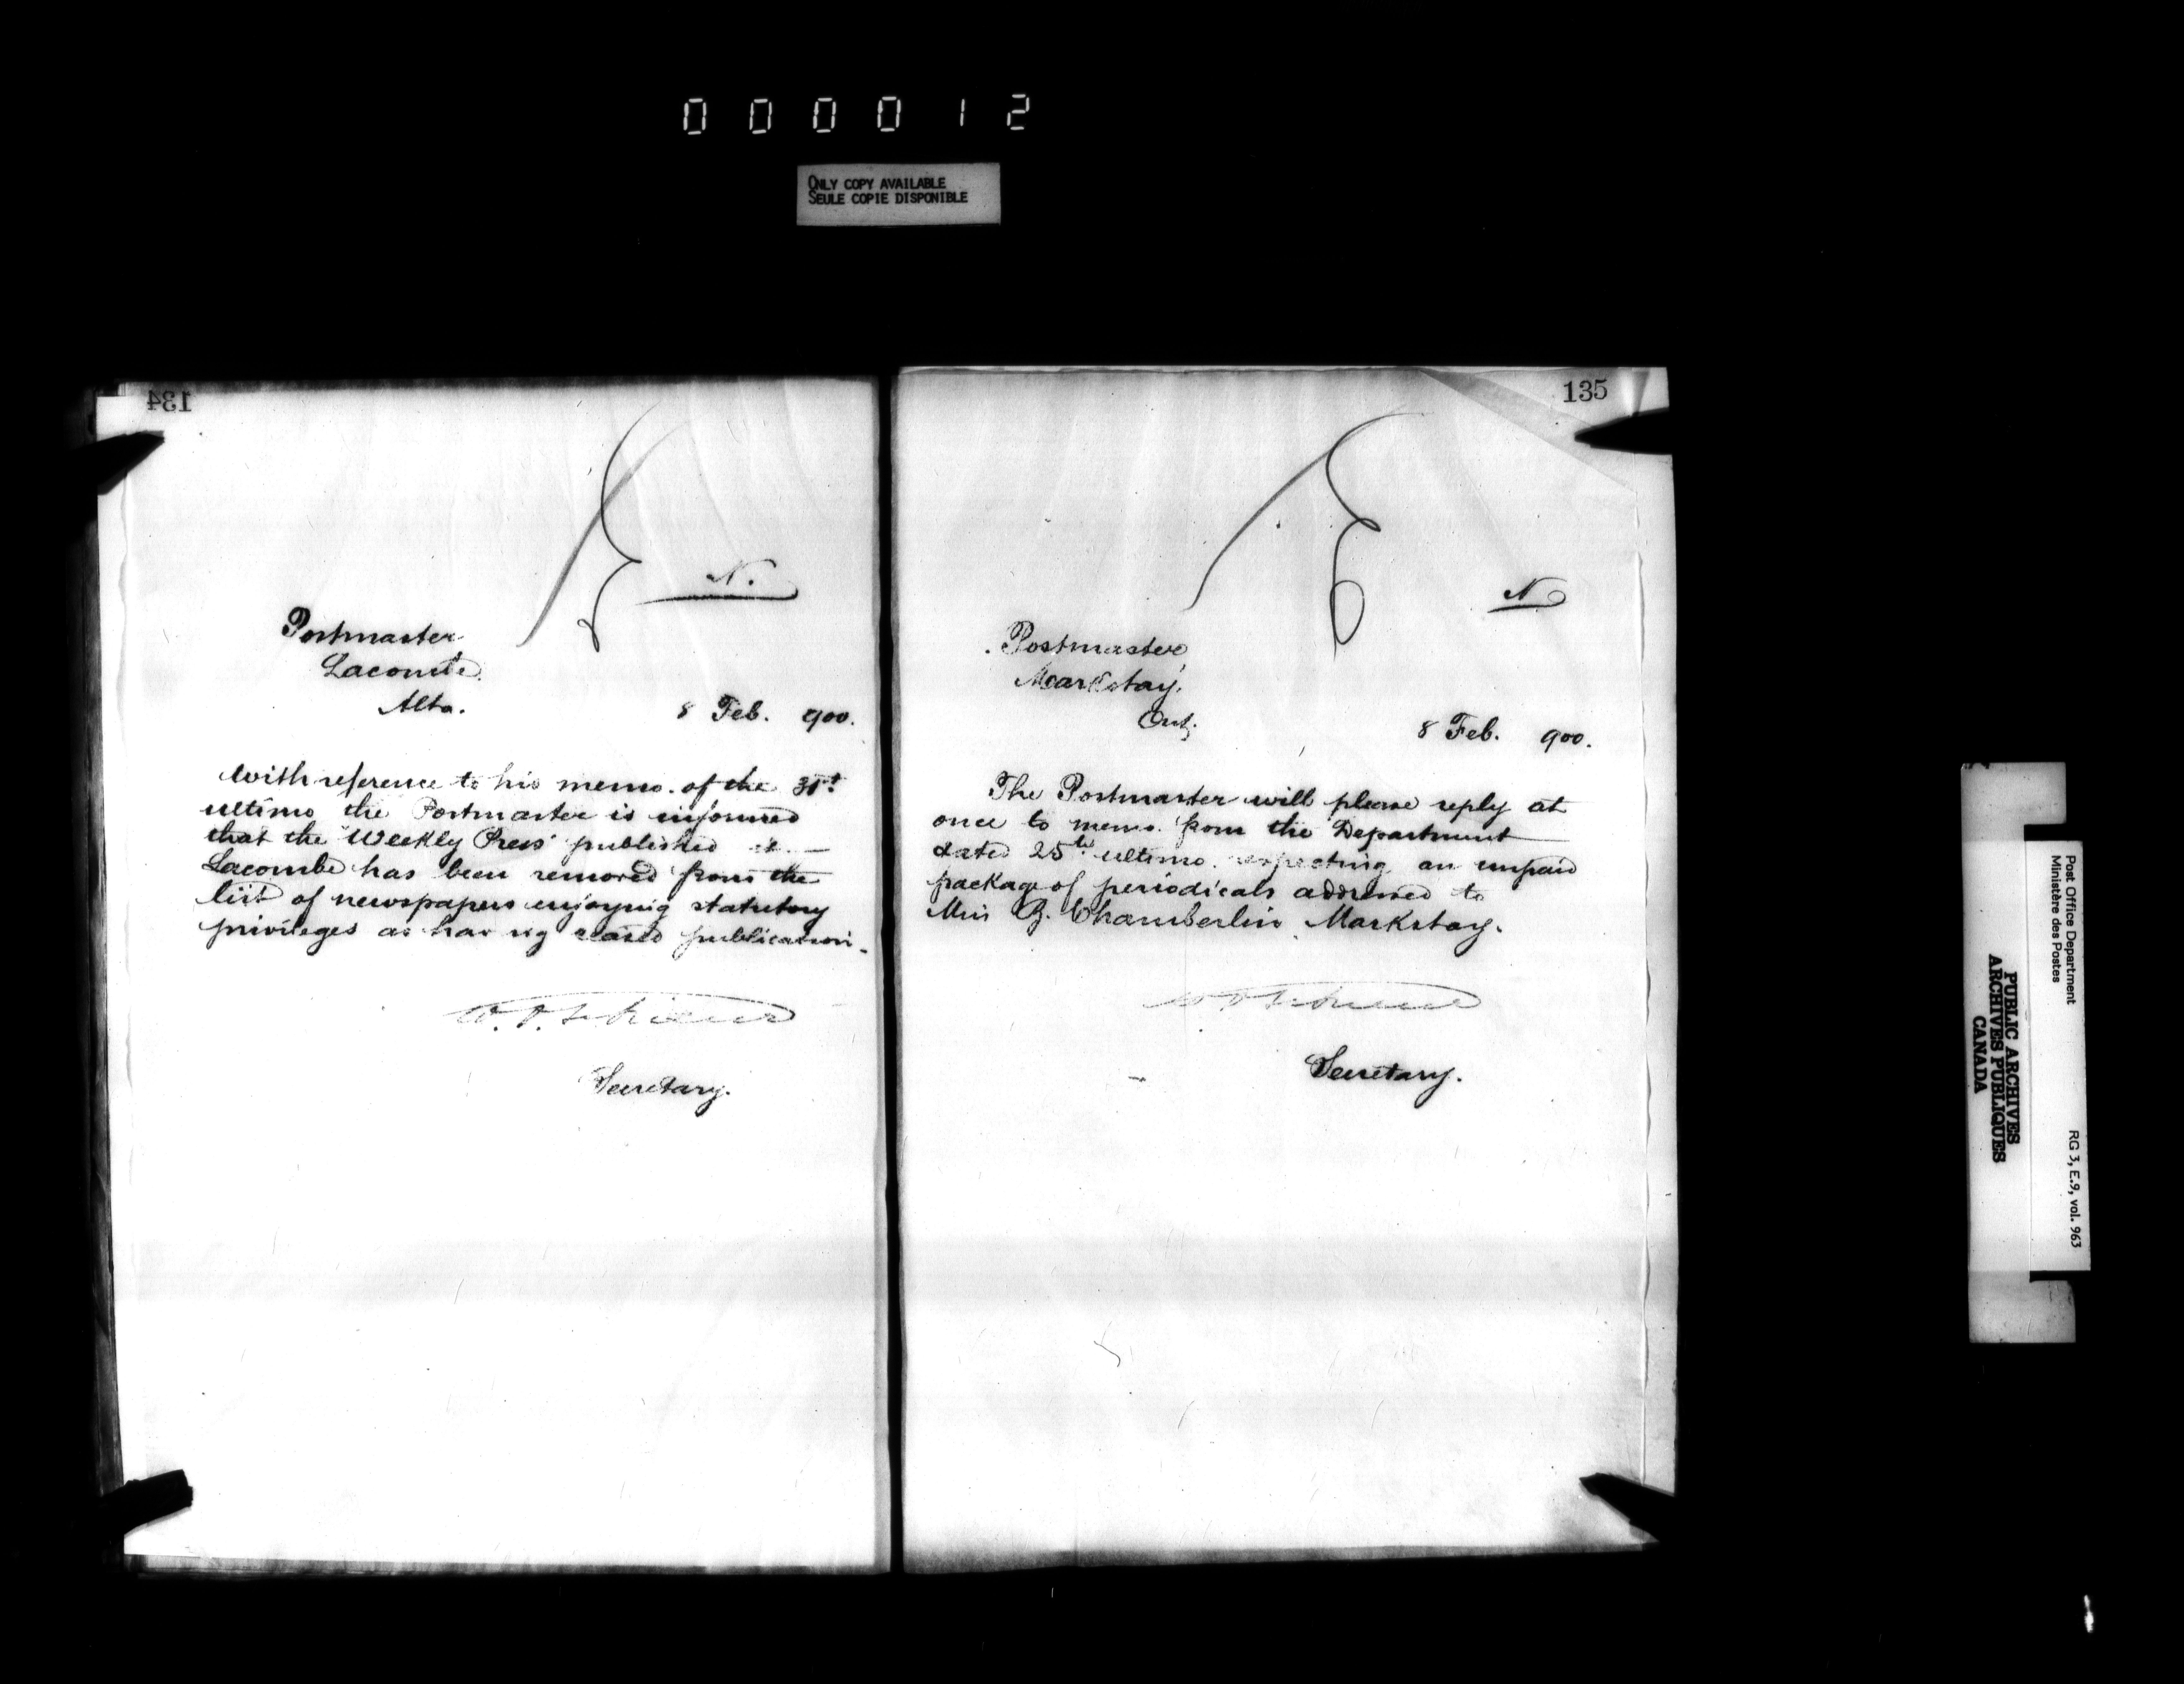 000012
ONLY COPY AVAILABLE
SEULE COPIE DISPONIBLE
134
N.
Postmaster
Lacombe
Alta.
8 Feb. 900.
With reference to his memo. of the 31st
ultimo the Postmaster is informed
that the "Weekly Press" published at
Lacombe has been removed from the
list of newspapers enjoying statutory
privileges as having ceased publication.
Secretary.
135
N
Postmaster
Markstay.
Ont.
8 Feb. 900.
The Postmaster will please reply at
once to memo. from the Department
dated 25th ultimo. respecting an unpaid
package of periodicals addressed to
Chamberlin Markstay.
Secretary.
Post Office Department
Ministère des Postes
RG 3, E.9, vol. 963
PUBLIC ARCHIVES
ARCHIVES PUBLIQUES
CANADA